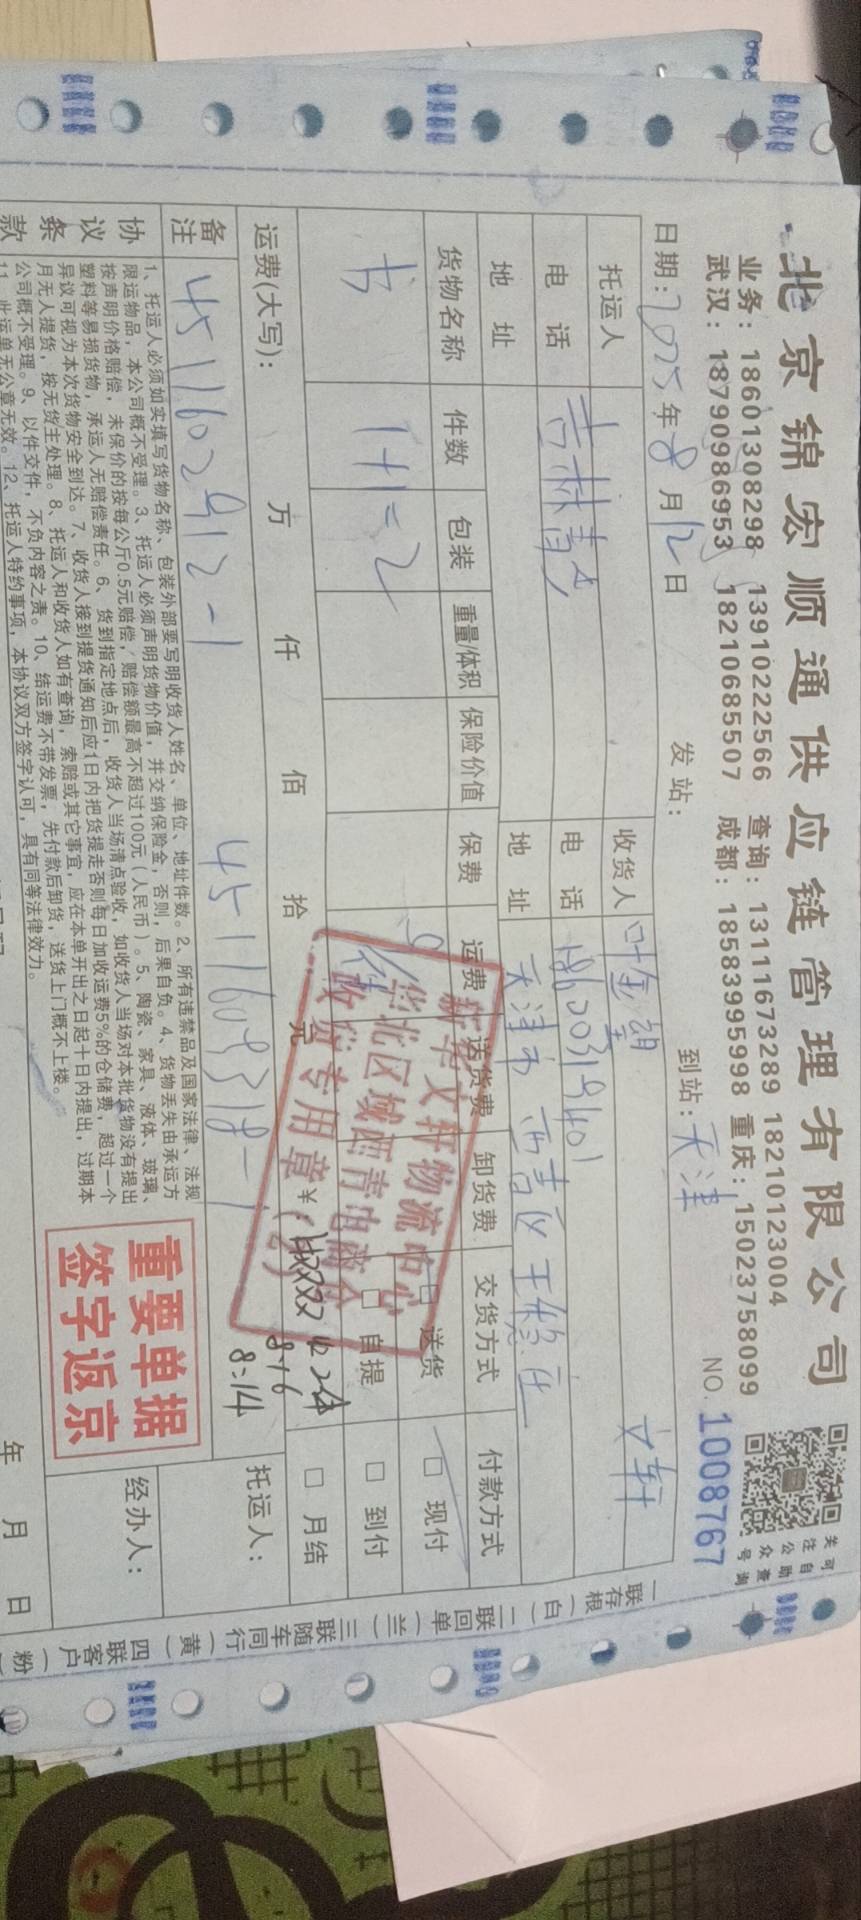 北京锦宏顺通供应链管理有限公司
业务：18601308298 13910222566 查询：13111673289 18210123004
武汉：18790986953 18210685507 成都：18583995998 重庆：15023758099
关注公众号
可自助查询
日期：2025年8月12日 发站： 到站：天津 NO.1008767
托运人 收货人 文轩
电话 吉林青 电话 18620319401
地址 地址 天津市西青区王稳庄
货物名称 件数 包装 重量/体积 保险价值 保费 运费 送货费 卸货费 交货方式 付款方式
书 1+1=2 □ 送货 □ 现付
□ 自提 □ 到付
□ 月结
运费(大写)： 万 仟 佰 拾 元 ¥：
新华文轩物流中心
华北区域西青电商仓
收货专用章
8:16
8:14
备注 451602912-1 451609318-1
托运人：
经办人：
年 月 日
协议条款
1、托运人必须如实填写货物名称、包装外部要写明收货人姓名、单位、地址件数。2、所有违禁品及国家法律、法规
限运物品，本公司概不受理。3、托运人必须声明货物价值，并交纳保险金，否则，后果自负。4、货物丢失由承运方
按声明价格赔偿，未保价的按每公斤0.5元赔偿，赔偿额最高不超过100元（人民币）。5、陶瓷、家具、液体、玻璃、
塑料等易损货物，承运人无赔偿责任。6、货到指定地点后，收货人当场清点验收，如收货人当场对本批货物没有提出
异议可视为本次货物安全到达。7、收货人接到提货通知后应1日内把货提走否则每日加收运费5%的仓储费，超过一个
月无人提货，按无货主处理。8、托运人和收货人如有查询，索赔或其它事宜，应在本单开出之日起十日内提出，过期本
公司概不受理。9、以件交件，不负内容之责。10、结运费不带发票，先付款后卸货，送货上门概不上楼。
11、此运单无公章无效。12、托运人特约事项，本协议双方签字认可，具有同等法律效力。
重要单据
签字返京
一联存根(白) 二联回单(兰) 三联随车同行(黄) 四联客户(粉